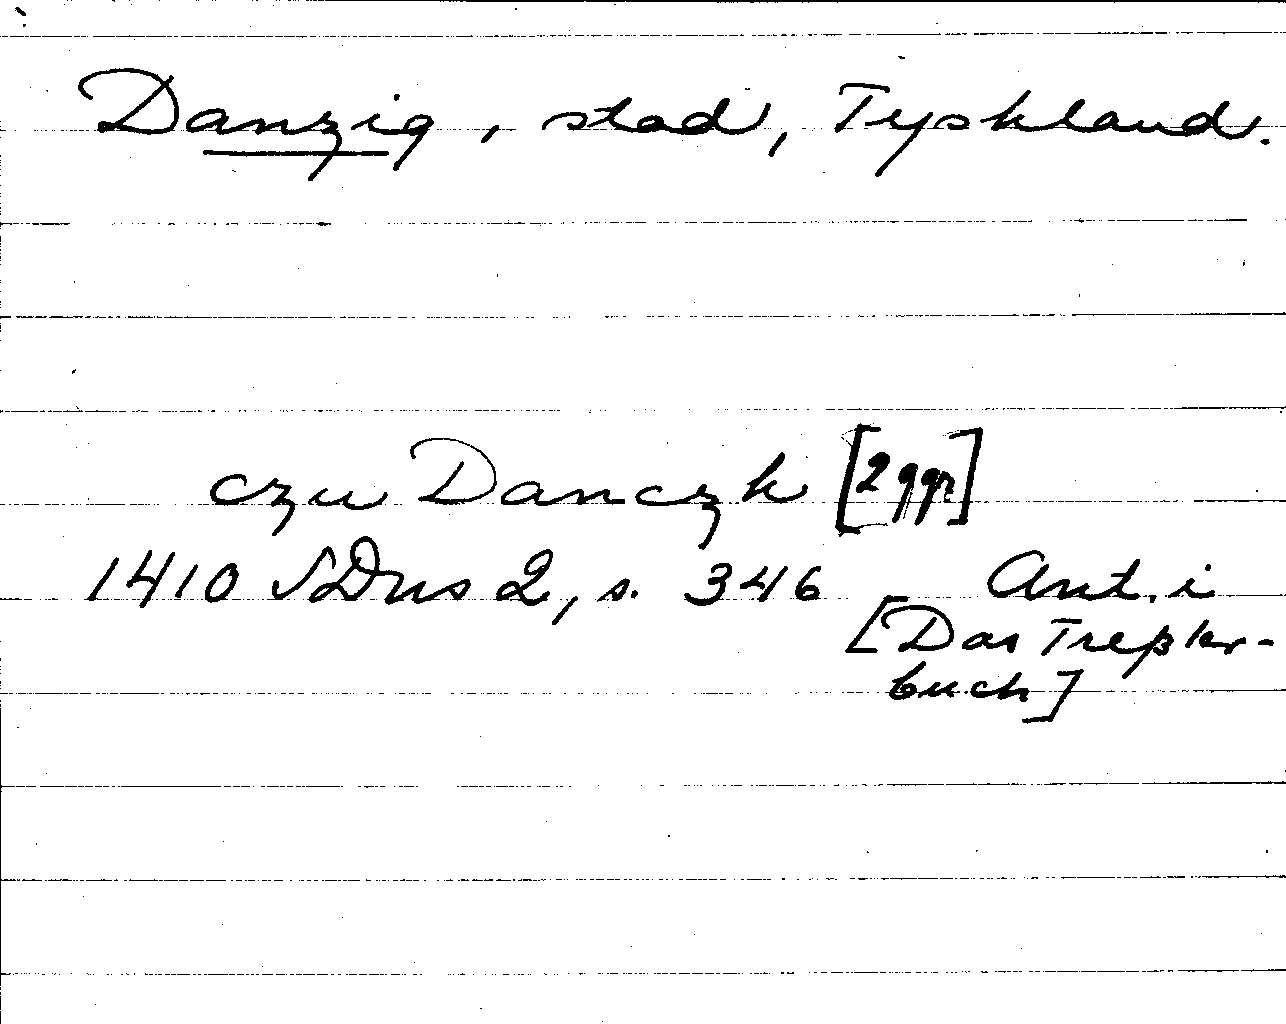 Danzig, stad, Tyskland.
czu Danczk [2 ggr]
1410 SDns 2, s. 346 Ant. i
[Das Treßler-
buch]